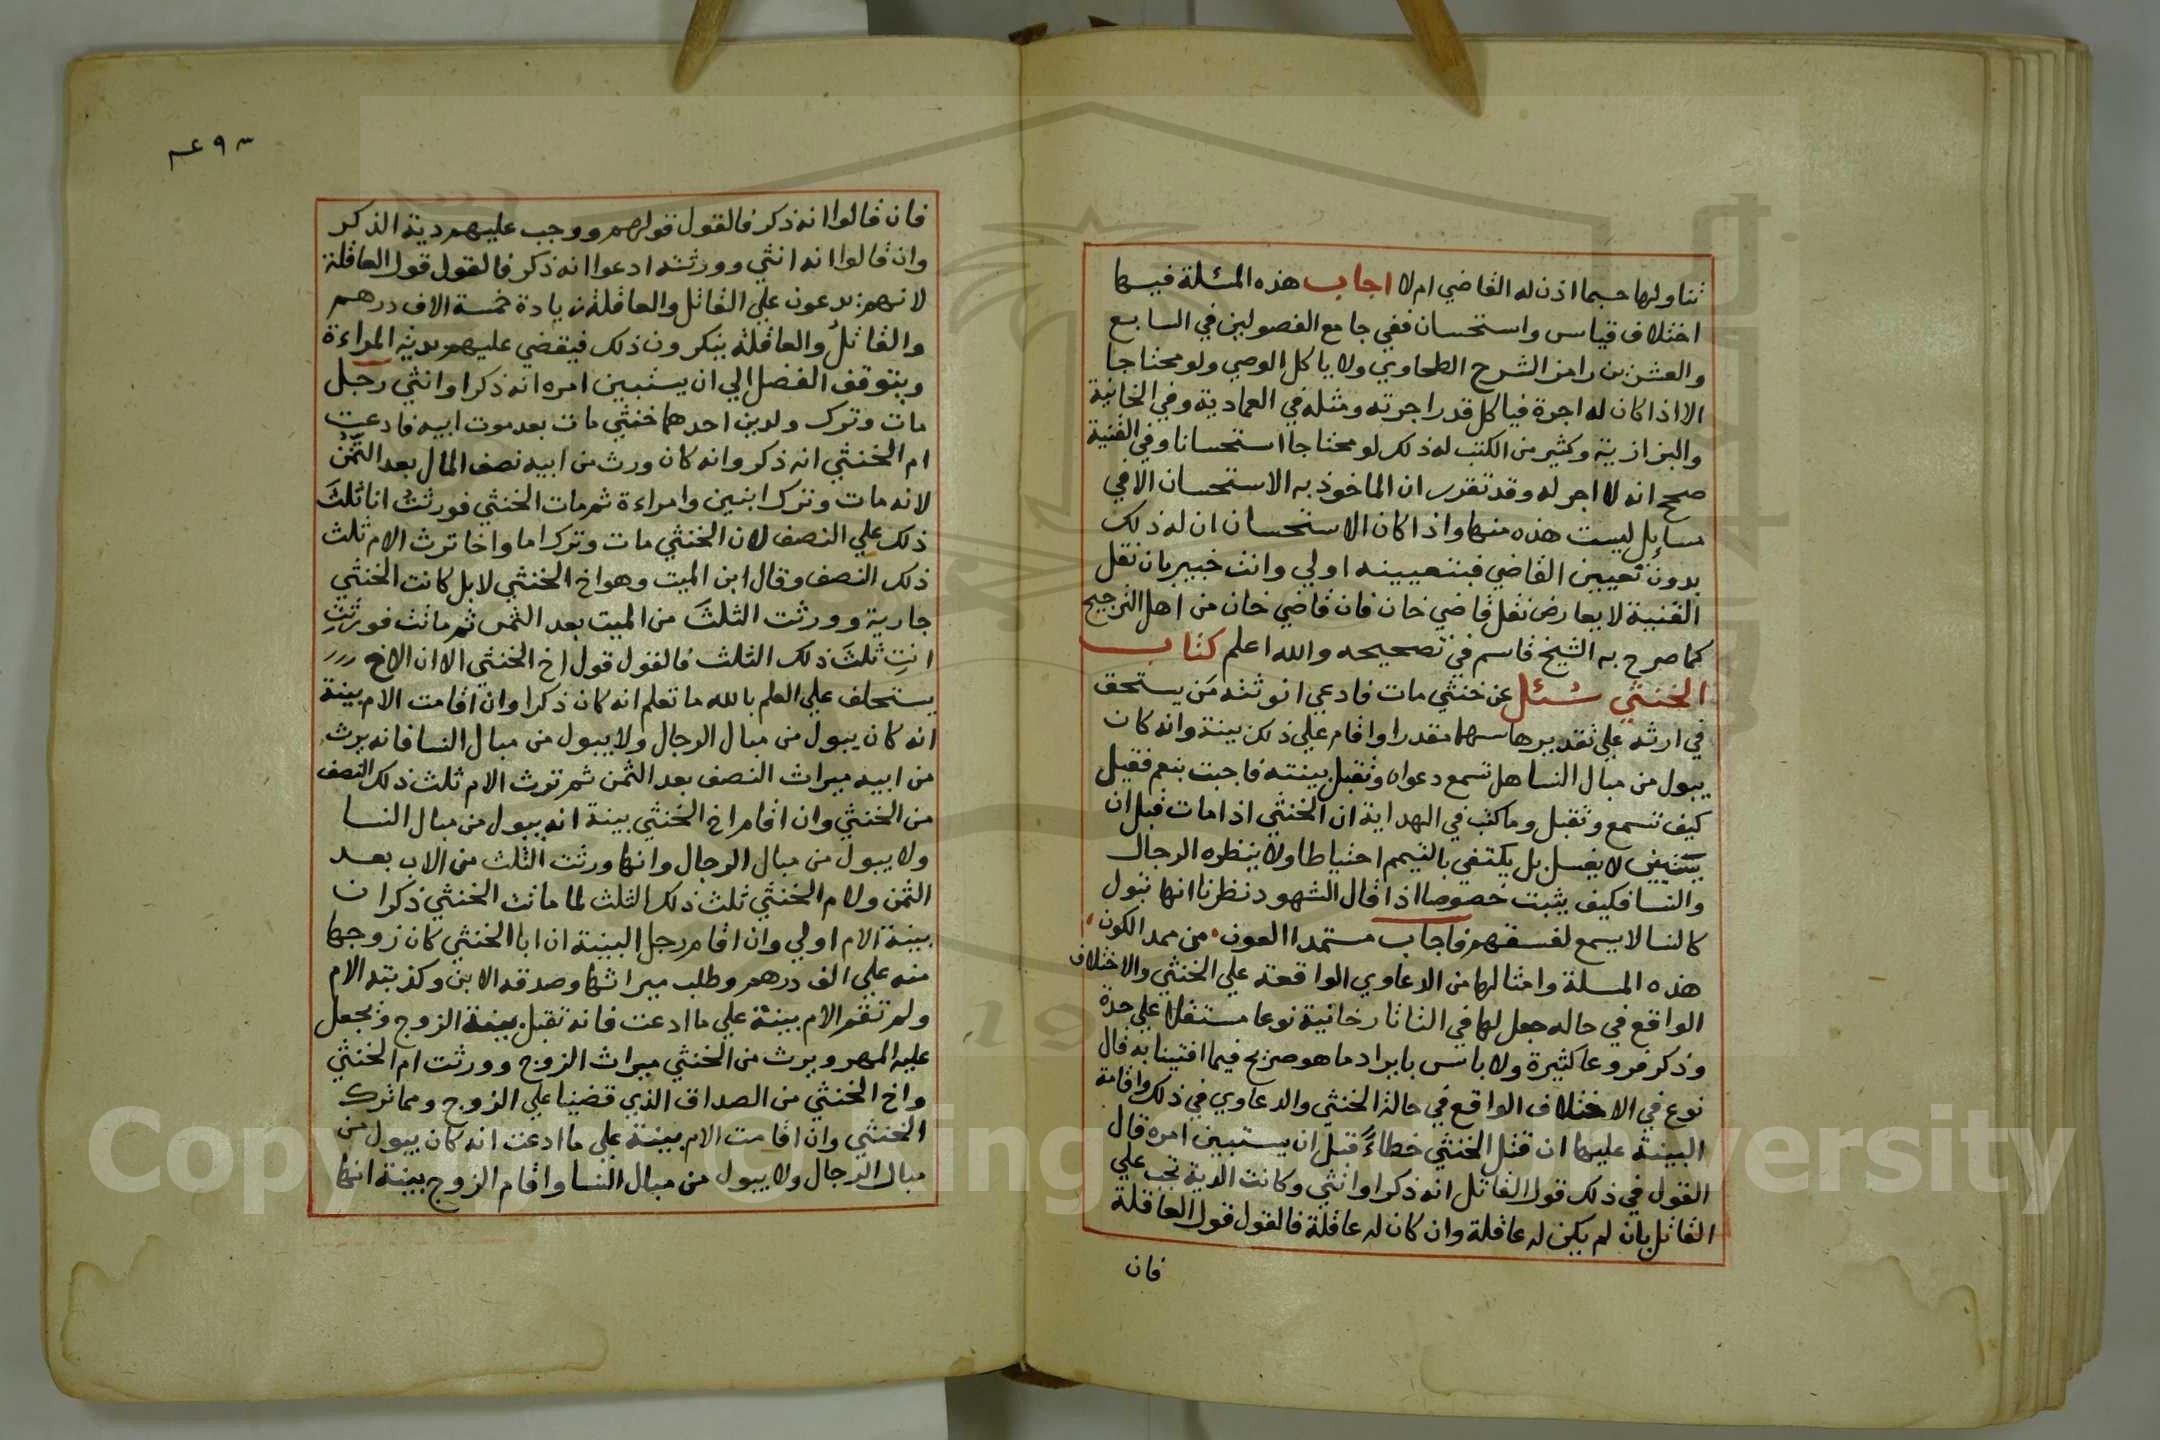 تناولها حيما اذن له القاضي ام لا اجاب هذه المسئلة فيها
اختلاف قياس واستحسان ففي جامع الفصولين في السابع
والعشرين رامز الشرح الطحاوي ولا ياكل الوصي ولو محتاجا
الا اذا كان له اجرة فياكل قدر اجرته ومثله في العمادية وفي الخانية
والبزازية وكثير من الكتب له ذلك لو محتاجا استحسانا وفي القنية
صحح انه لا اجر له وقد تقرر ان الماخوذ به الاستحسان الا في
مسايل ليست هذه منها واذا كان الاستحسان ان له ذلك
بدون تعيين القاضي فبتعيينه اولي وانت خبير بان نقل
القنية لا يعارض نقل قاضي خان فان قاضي خان من اهل الترجيح
كما صرح به الشيخ قاسم في تصحيحه والله اعلم كتاب
الخنثي سئل عن خنثي مات فادعي انوثته من يستحق
في ارثه علي تقديرها سهما مقدرا واقام علي ذلك بينة وانه كان
يبول من مبال النسا هل تسمع دعواه وتقبل بينته فاجبت بنعم فقيل
كيف تسمع وتقبل وما كتب في الهداية ان الخنثي اذا مات قبل ان
يستبين لا يغسل بل يكتفي بالتيمم احتياطا ولا ينظره الرجال
والنسا فكيف يثبت خصوصا اذا قال الشهود نظرنا انها تبول
كالنسا لا يسمع لفسقهم فاجاب مستمدا العون من ممد الكون
هذه المسلة وامثالها من الدعاوي الواقعة علي الخنثي والاختلاف
الواقع في حاله جعل لها في التاتارخانية نوعا مستقلا علي حدة
وذكر فروعا كثيرة ولا باس بايراد ما هو صريح فيما افتينا به قال
نوع في الاختلاف الواقع في حالة الخنثي والدعاوي في ذلك واقامة
البينة عليها ان قتل الخنثي خطاءً قبل ان يستبين امره قال
القول في ذلك قول القاتل انه ذكر او انثي وكانت الدية تجب علي
القاتل بان لم يكن له عاقلة وان كان له عاقلة فالقول قول العاقلة
فان
٤٩٣
فان قالوا انه ذكر فالقول قولهم ووجب عليهم دية الذكر
وان قالوا انه انثي وورثته ادعوا انه ذكر فالقول قول العاقلة
لانهم يدعون علي القاتل والعاقلة زيادة خمسة الاف درهم
والقاتل والعاقلة ينكرون ذلك فيقضي عليهم بدية المراءة
ويتوقف الفضل الي ان يستبين امره انه ذكر او انثي رجل
مات وترك ولدين احدهما خنثي مات بعد موت ابيه فادعت
ام الخنثي انه ذكر وانه كان ورث من ابيه نصف المال بعد الثمن
لانه مات وترك ابنين وامراءة ثم مات الخنثي فورثت انا ثلث
ذلك علي النصف لان الخنثي مات وترك اما واخا ترث الام ثلث
ذلك النصف وقال ابن الميت وهو اخ الخنثي لا بل كانت الخنثي
جارية وورثت الثلث من الميت بعد الثمن ثم ماتت فورثتِ
انتِ ثلث ذلك الثلث فالقول قول اخ الخنثي الا ان الاخ
يستحلف علي العلم بالله ما تعلم انه كان ذكرا وان اقامت الام بينة
انه كان يبول من مبال الرجال ولا يبول من مبال النسا فانه يرث
من ابيه ميراث النصف بعد الثمن ثم ترث الام ثلث ذلك النصف
من الخنثي وان اقام اخ الخنثي بينة انه يبول من مبال النسا
ولا يبول من مبال الرجال وانها ورثت الثلث من الاب بعد
الثمن ولام الخنثي ثلث ذلك الثلث لما ماتت الخنثي ذكر ان
بينة الام اولي وان اقام رجل البينة ان ابا الخنثي كان زوجها
منه علي الف درهم وطلب ميراثها وصدقه الابن وكذبته الام
ولم تقم الام بينة علي ما ادعت فانه تقبل بينة الزوج وتجعل
عليه المهر ويرث من الخنثي ميراث الزوج وورثت ام الخنثي
واخ الخنثي من الصداق الذي قضينا علي الزوج ومما ترك
الخنثي وان اقامت الام بينة علي ما ادعت انه كان يبول من
مبال الرجال ولا يبول من مبال النسا واقام الزوج بينة انها